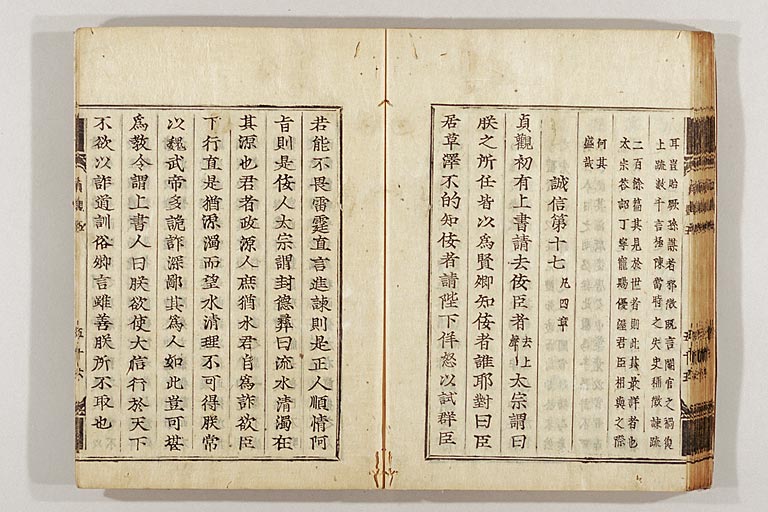 耳豈貽厥孫謀者邪徵既言閹官之禍與
上疏數千言極陳當時之失史稱徵諫疏
二百餘篇其見於世者則此其最詳者也
太宗答詔丁寧寵賜優渥君臣相與之際
何其
盛哉
誠信第十七 凡四章
貞觀初有上書請去佞臣者去上聲太宗謂曰
朕之所任皆以爲賢卿知佞者誰耶對曰臣
居草澤不的知佞者請陛下佯怒以試群臣
若能不畏雷霆直言進諫則是正人順情阿
旨則是佞人太宗謂封德彝曰流水清濁在
其源也君者政源人庶猶水君自爲詐欲臣
下行直是猶源濁而望水清理不可得朕常
以魏武帝多詭詐深鄙其爲人如此豈可堪
爲教令謂上書人曰朕欲使大信行於天下
不欲以詐道訓俗卿言雖善朕所不取也